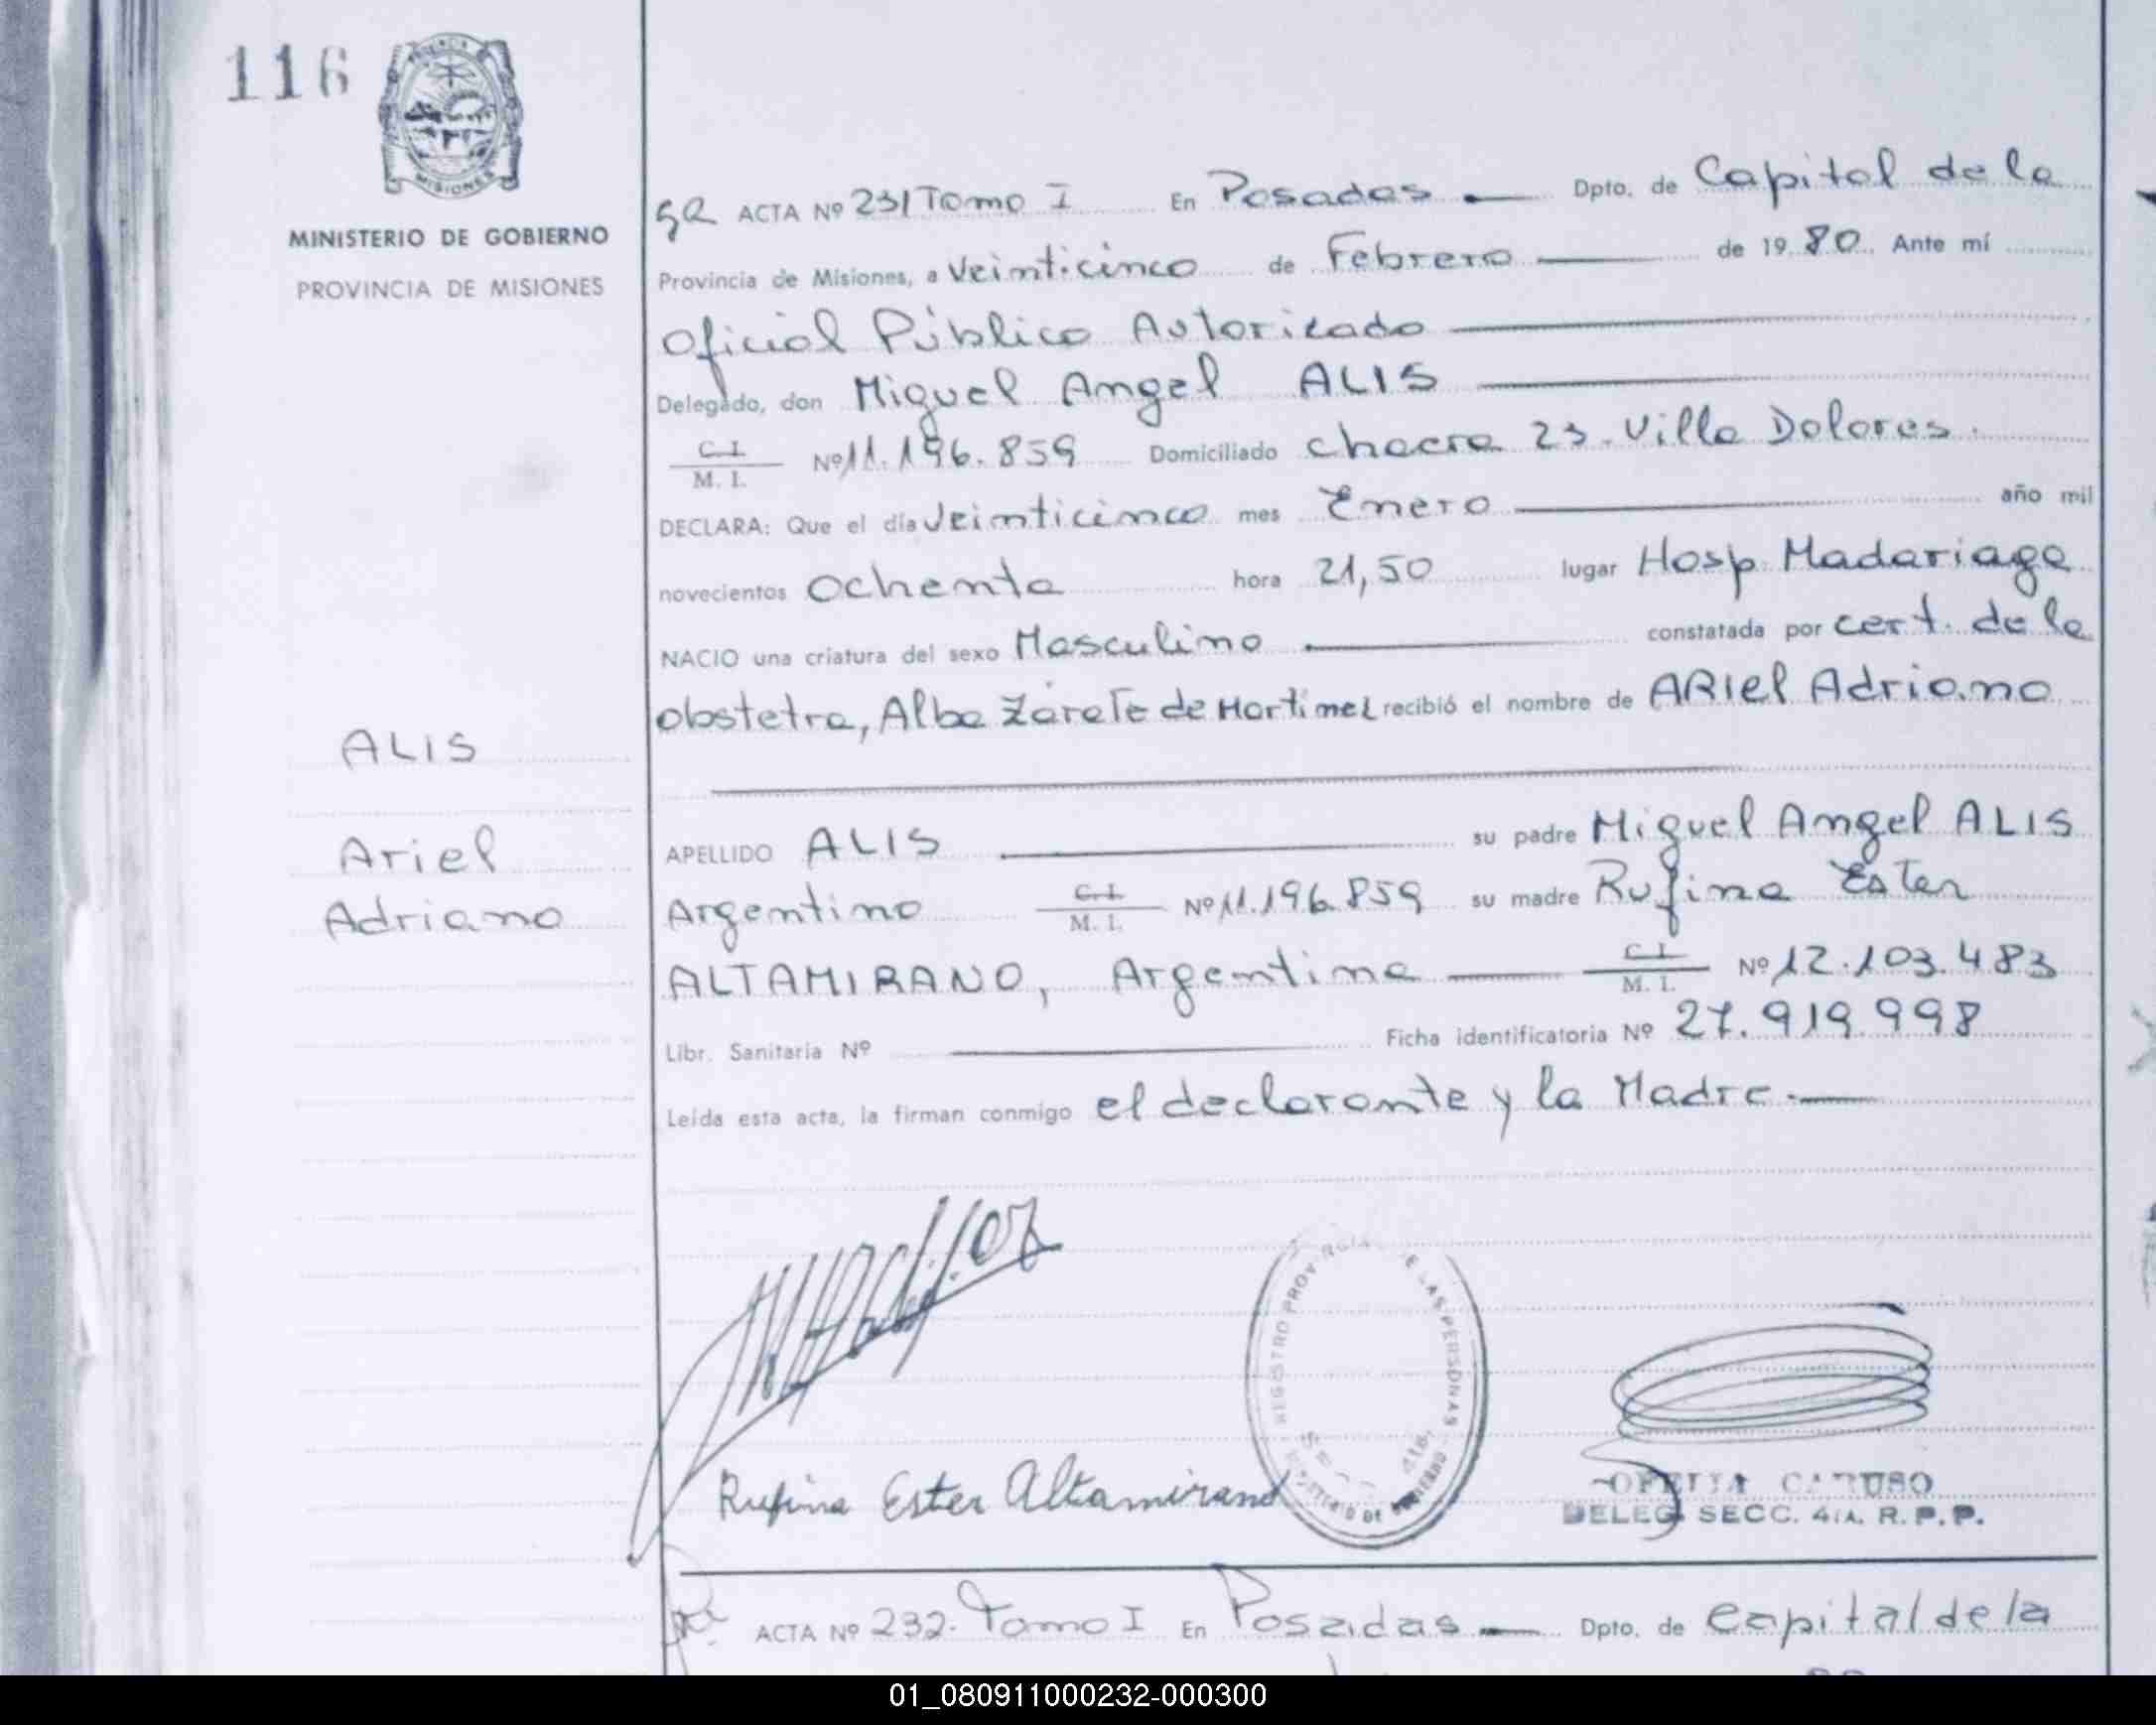 116
MISIONES
MINISTERIO DE GOBIERNO
PROVINCIA DE MISIONES
ACTA Nº 231 Tomo I En Posadas — Dpto. de Capital de la
Provincia de Misiones, a Veinticinco de Febrero — de 19 80. Ante mí
Oficial Público Autorizado —
Delegado, don Miguel Angel ALIS —
C.I.
M. I. Nº 11.196.859 Domiciliado chacra 23. Villa Dolores.
DECLARA: Que el día Veinticinco mes Enero — año mil
novecientos Ochenta hora 21,50 lugar Hosp. Madariaga
NACIO una criatura del sexo Masculino — constatada por cert. de la
obstetra, Alba Zárate de Martinez recibió el nombre de ARIel Adriano
ALIS
Ariel
Adriano
APELLIDO ALIS — su padre Miguel Angel ALIS
Argentino C.I.
M. I. Nº 11.196.859 su madre Rufina Ester
ALTAMIRANO, Argentina — C.I.
M. I. Nº 12.103.483
Libr. Sanitaria Nº — Ficha identificatoria Nº 27.919.998
Leída esta acta, la firman conmigo el declarante y la Madre.—
REGISTRO PROVINCIAL DE LAS PERSONAS
Rufina Ester Altamirano
OFELIA CARUSO
DELEG. SECC. 4TA. R.P.P.
ACTA Nº 232. Tomo I En Posadas — Dpto. de Capital de la
01_080911000232-000300